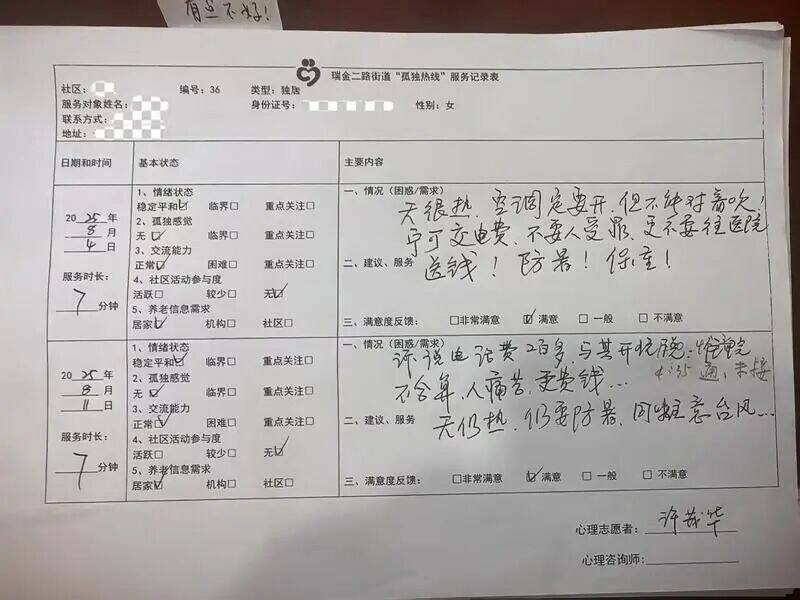 有点不好!
瑞金二路街道“孤独热线”服务记录表
社区: 编号: 36 类型: 独居
服务对象姓名: 身份证号: 性别: 女
联系方式:
地址:
日期和时间 基本状态 主要内容
2025年
8月
4日
服务时长:
7分钟
1、情绪状态
稳定平和☑ 临界□ 重点关注□
2、孤独感觉
无☑ 临界□ 重点关注□
3、交流能力
正常☑ 困难□ 重点关注□
4、社区活动参与度
活跃□ 较少□ 无☑
5、养老信息需求
居家☑ 机构□ 社区□
一、情况(困惑/需求)
天很热,空调定要开,但不能对着吹!
宁可交电费,不要人受罪,更不要往医院
二、建议、服务
送钱!防暑!保重!
三、满意度反馈: □非常满意 ☑满意 □一般 □不满意
2025年
8月
11日
服务时长:
7分钟
1、情绪状态
稳定平和☑ 临界□ 重点关注□
2、孤独感觉
无☑ 临界□ 重点关注□
3、交流能力
正常☑ 困难□ 重点关注□
4、社区活动参与度
活跃□ 较少□ 无☑
5、养老信息需求
居家☑ 机构□ 社区□
一、情况(困惑/需求)
说电话费2百多,与其开
4:35 通,未接
不合算,人痛苦,更费钱…
二、建议、服务
天仍热,仍要防暑,同时注意台风…
三、满意度反馈: □非常满意 ☑满意 □一般 □不满意
心理志愿者: 许茂华
心理咨询师: